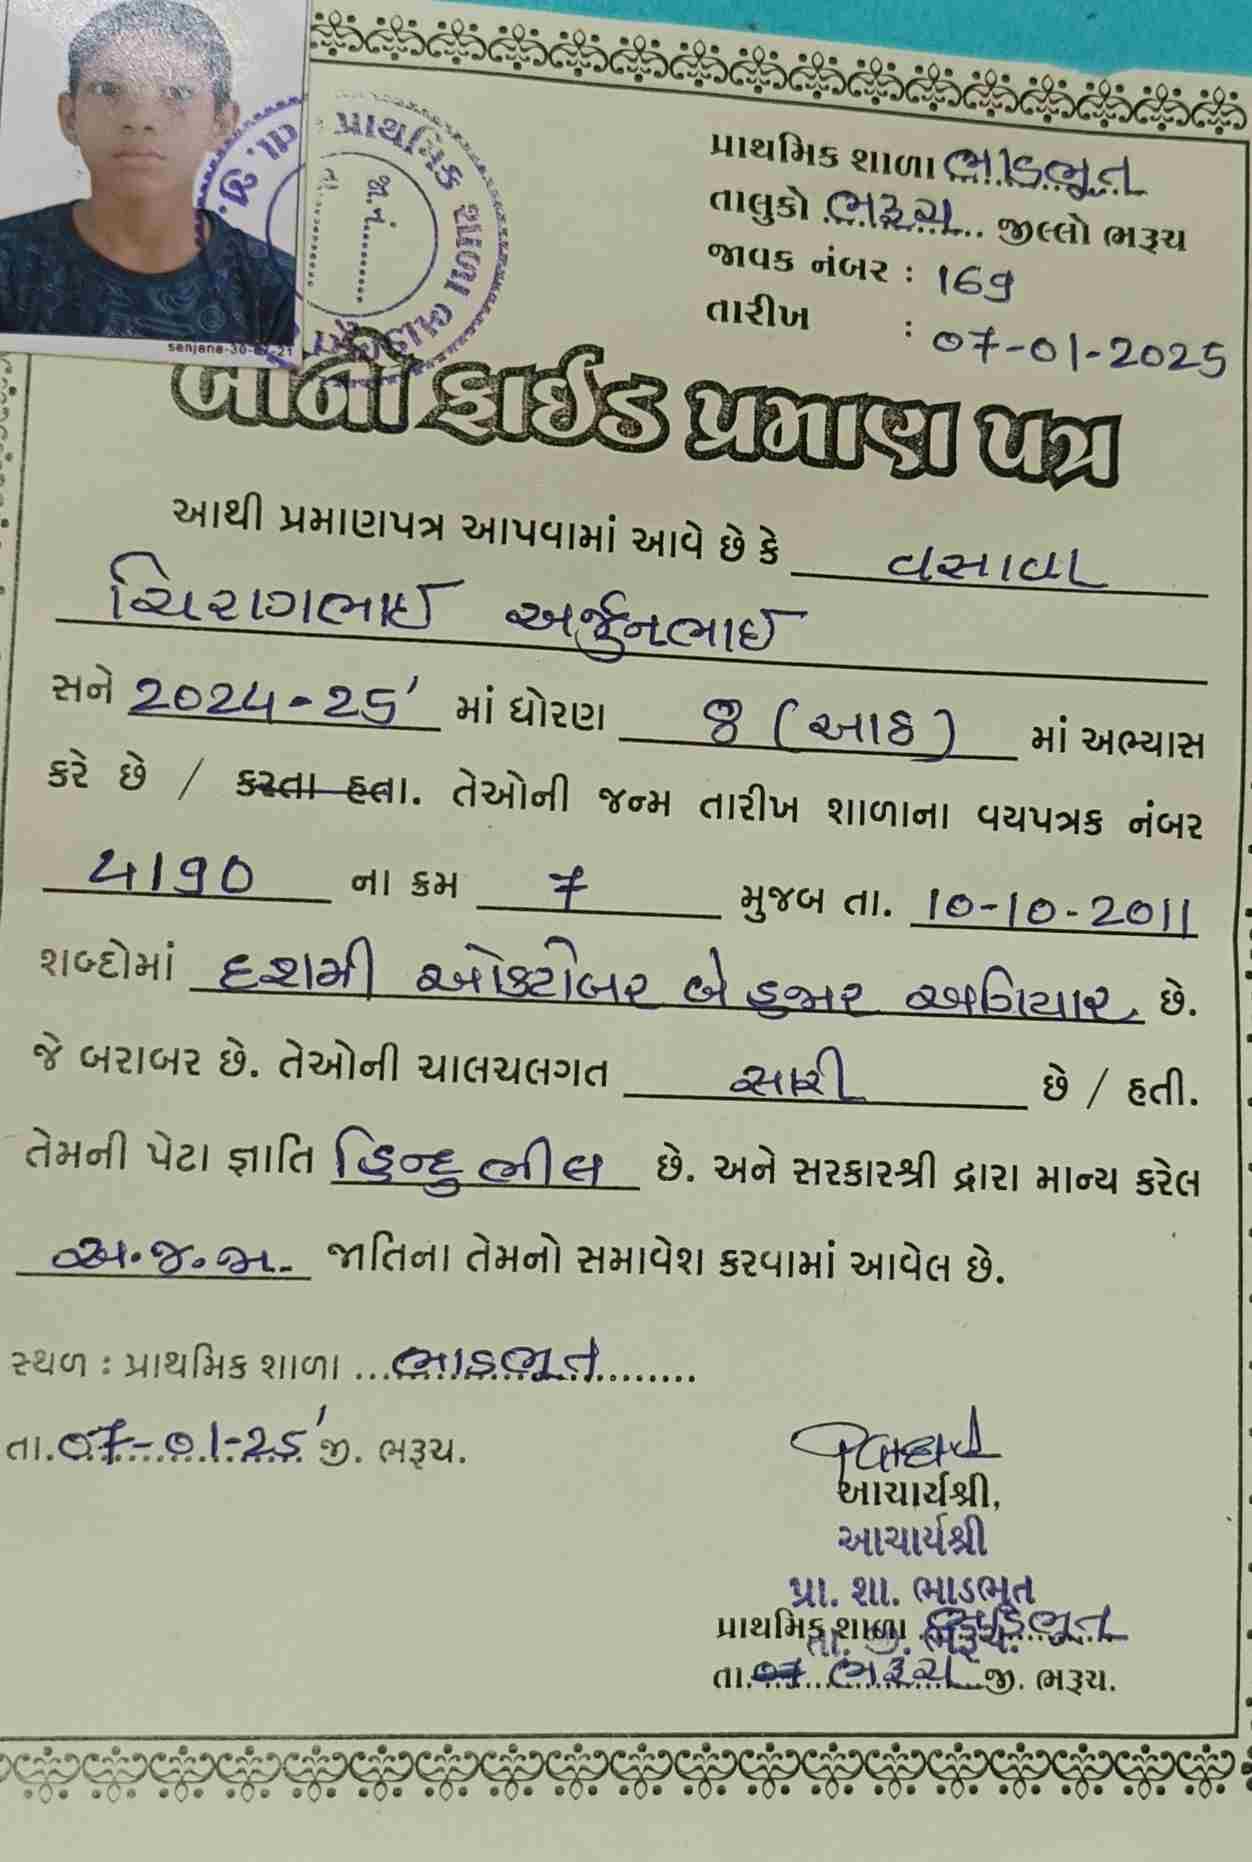 પ્રાથમિક શાળા ભાડભૂત
તાલુકો ભરૂચ જીલ્લો ભરૂચ
જાવક નંબર : 169
તારીખ : 07-01-2025
પ્રાથમિક શાળા ભાડભૂત
તા. જી.
જા.નં.
તા.
sanjana-30-07-21
બોનો ફાઈડ પ્રમાણ પત્ર
આથી પ્રમાણપત્ર આપવામાં આવે છે કે વસાવા
ચિરાગભાઈ અર્જુનભાઈ
સને 2024-25' માં ધોરણ 8 (આઠ) માં અભ્યાસ
કરે છે / કરતા હતા. તેઓની જન્મ તારીખ શાળાના વયપત્રક નંબર
4190 ના ક્રમ 7 મુજબ તા. 10-10-2011
શબ્દોમાં દશમી ઓક્ટોબર બે હજાર અગિયાર છે.
જે બરાબર છે. તેઓની ચાલચલગત સારી છે / હતી.
તેમની પેટા જ્ઞાતિ હિન્દુ ભીલ છે. અને સરકારશ્રી દ્વારા માન્ય કરેલ
અ.જ.જા. જાતિના તેમનો સમાવેશ કરવામાં આવેલ છે.
સ્થળ : પ્રાથમિક શાળા ભાડભૂત
તા. 07-01-25' જી. ભરૂચ.
આચાર્યશ્રી,
આચાર્યશ્રી
પ્રા. શા. ભાડભૂત
પ્રાથમિક શાળા ભાડભૂત
તા. જી. ભરૂચ.
તા. ભરૂચ જી. ભરૂચ.